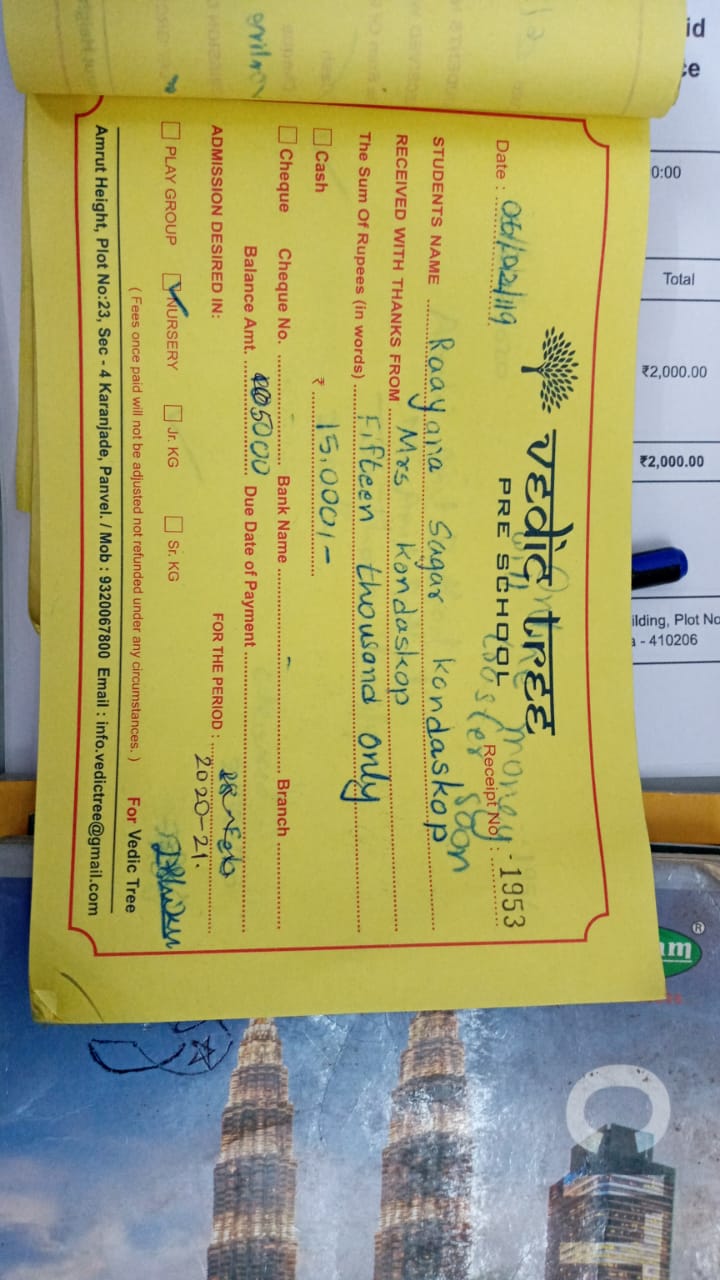 vedic tree
PRE SCHOOL
Date : 06/02/19
Receipt No : 1953
STUDENTS NAME Raayana Sagar kondaskop
RECEIVED WITH THANKS FROM Mrs kondaskop
The Sum Of Rupees (in words) Fifteen thousand only
Cash ₹ 15,000/-
Cheque Cheque No. Bank Name - Branch
Balance Amt. 5000 Due Date of Payment Feb
ADMISSION DESIRED IN: FOR THE PERIOD : 2020-21.
PLAY GROUP NURSERY Jr. KG Sr. KG
( Fees once paid will not be adjusted not refunded under any circumstances. ) For Vedic Tree
Amrut Height, Plot No:23, Sec - 4 Karanjade, Panvel. / Mob : 9320067800 Email : info.vedictree@gmail.com
id
ce
0:00
Total
₹2,000.00
₹2,000.00
ilding, Plot No
a - 410206
am
®